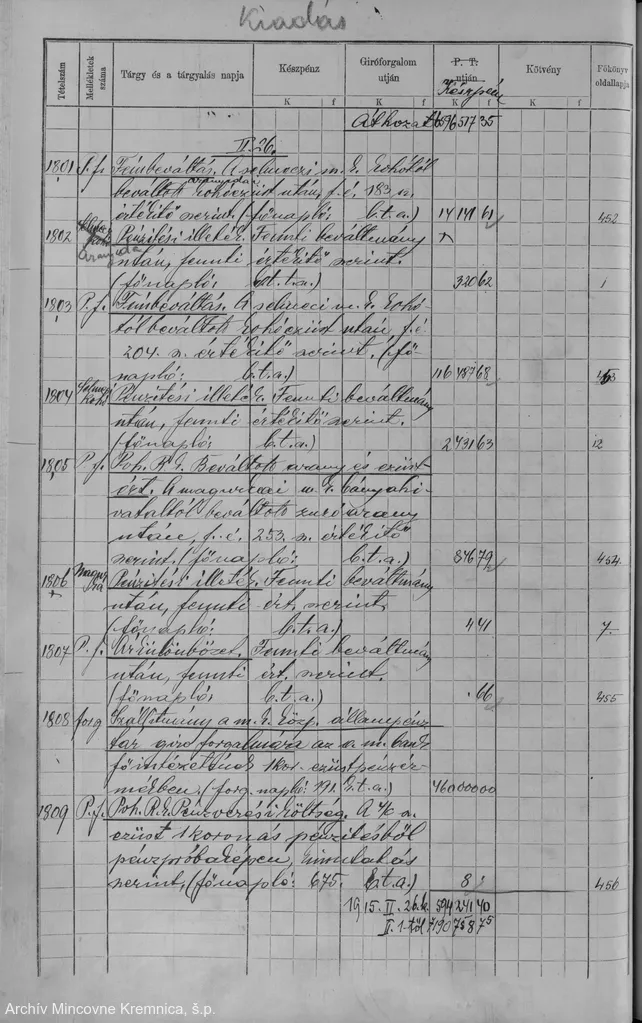 Kiadás
Tételszám
Mellékletek száma
Tárgy és a tárgyalás napja
Készpénz
Giróforgalom utján
P. T. utján
Készpénz
Kötvény
Főkönyv oldallapja
K f K f K f K f
Áthozat
II. 26.
1801 Fémbeváltás. A selmeczi m. k. kohótól
beváltott kohóezüst után, f. é. 183 n.
értékítő szerint. (főnapló: b.t.a.) 14 141 61 452
1802 Pénzitési illeték. Fennti beváltmány
után, fennti értékítő szerint.
(főnapló: b.t.a.) 320 62 1
1803 P. f. Fémbeváltás. A selmeci m. k. kohó
tól beváltott kohóezüst után f. é.
204. n. értékítő szerint. (fő-
napló: b.t.a.) 68
1804 Pénzitési illeték. Fennti beváltmány
után, fennti értékítő szerint.
(főnapló: b.t.a.) 2431 63 12
1805 P. f. Poh. R. k. Beváltott arany és ezüst
ért. A magurkai m. k. bányahi-
vataltól beváltott zuzóarany
után, f. é. 253. n. értékítő
szerint. (főnapló: b.t.a.) 8767 9 454
1806 Pénzitési illeték. Fennti beváltmány
után, fennti ért. szerint.
(főnapló: b.t.a.) 4 41 7.
1807 P. f. Árkülönbözet. Fennti beváltmány
után, fennti ért. szerint.
(főnapló: b.t.a.) 66 455
1808 forg Szállítmány a m. k. közp. állampénz
tár giro forgalmára az o. m. bank
főintézetének 1 kor. ezüstpénzér-
mékben. (forg. napló: 191. b.t.a.) 460000 00
1809 P. f. Poh. R. k. Pénzverési költség. A 4/6 n.
ezüst 1 koronás pénzitésből
pénzpróbaképen, kimutatás
szerint, (főnapló: 675. b.t.a.) 8 : 456
1915. II. 26. k. 594 241 40
II. 1-től
Archív Mincovne Kremnica, š.p.